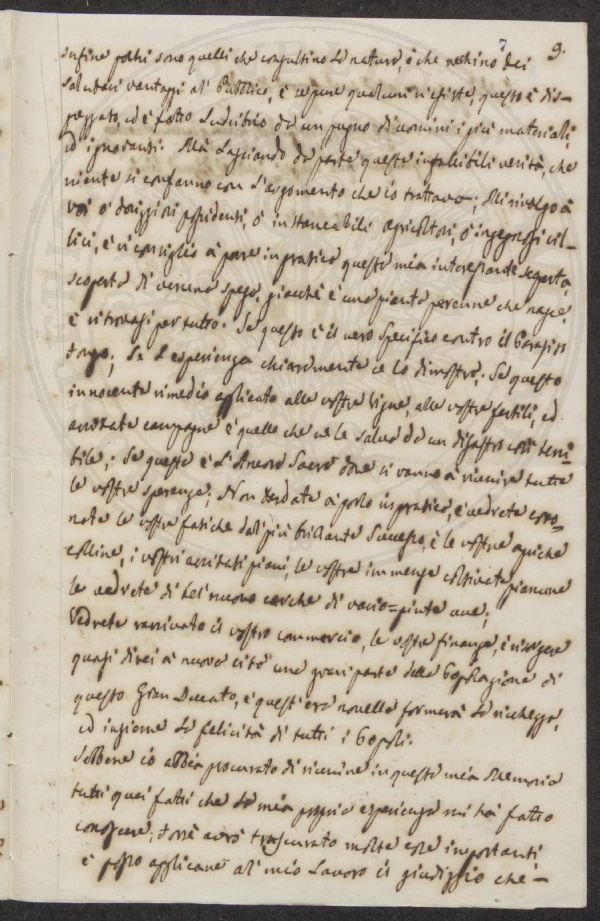 7 9.
Infine pochi sono quelli che consultino la natura, ò che rechino dei
salutari vantaggi al Pubblico, e seppure qualcuni vi esiste, questo è dis=
pezzato, ed è fatto Ludibrio da un pugno di uomini i più materiali,
ed ignoranti. Mà Lasciando da parte queste infallibili verità, che
niente si confanno con L'argomento che io trattavo; Mi rivolgo à
voi ò doviziosi possidenti, ò instancabili Agricoltori, ò ingegnosi vil=
lici, e vi consiglio à porre in pratica questa mia interessante scoperta,
scoperta di veruna spesa, giacchè è una pianta perenne che nasce,
e ritrovasi per tutto. Se questo è il vero Specifico contro il Parassi
to; La esperienza chiaramente ce lo dimostra. Se questo
innocente rimedio applicato alle vostre Vigne, alle vostre fertili, ed
avvitate campagne è quello che ve le salva da un disastro così terri=
bile; Se questa è L'Ancora Sacra dove si vanno à riunire tutte
le vostre speranze; Non tardate à porlo in pratica, e vedrete coro=
nate le vostre fatiche dal più brillante Successo, e le vostre apriche
colline, i vostri avvitati piani, le vostre immense coltivate pianure
le vedrete di bel nuovo cariche di vario=pinte uve;
Vedrete ravvivato il vostro commercio, le vostre finanze, e risorgere
quasi direi à nuova vita una gran parte della Popolazione di
questo Gran Ducato, e quest'era novella formerà la ricchezza,
ed insieme la felicità di tutti i Popoli.
Sebbene io abbia procurato di riunire in questa mia Memoria
tutti quei fatti che la mia propria esperienza mi ha fatto
conoscere; forse avrò trascurato molte cose importanti,
e posso applicare al mio Lavoro il giudizio che=